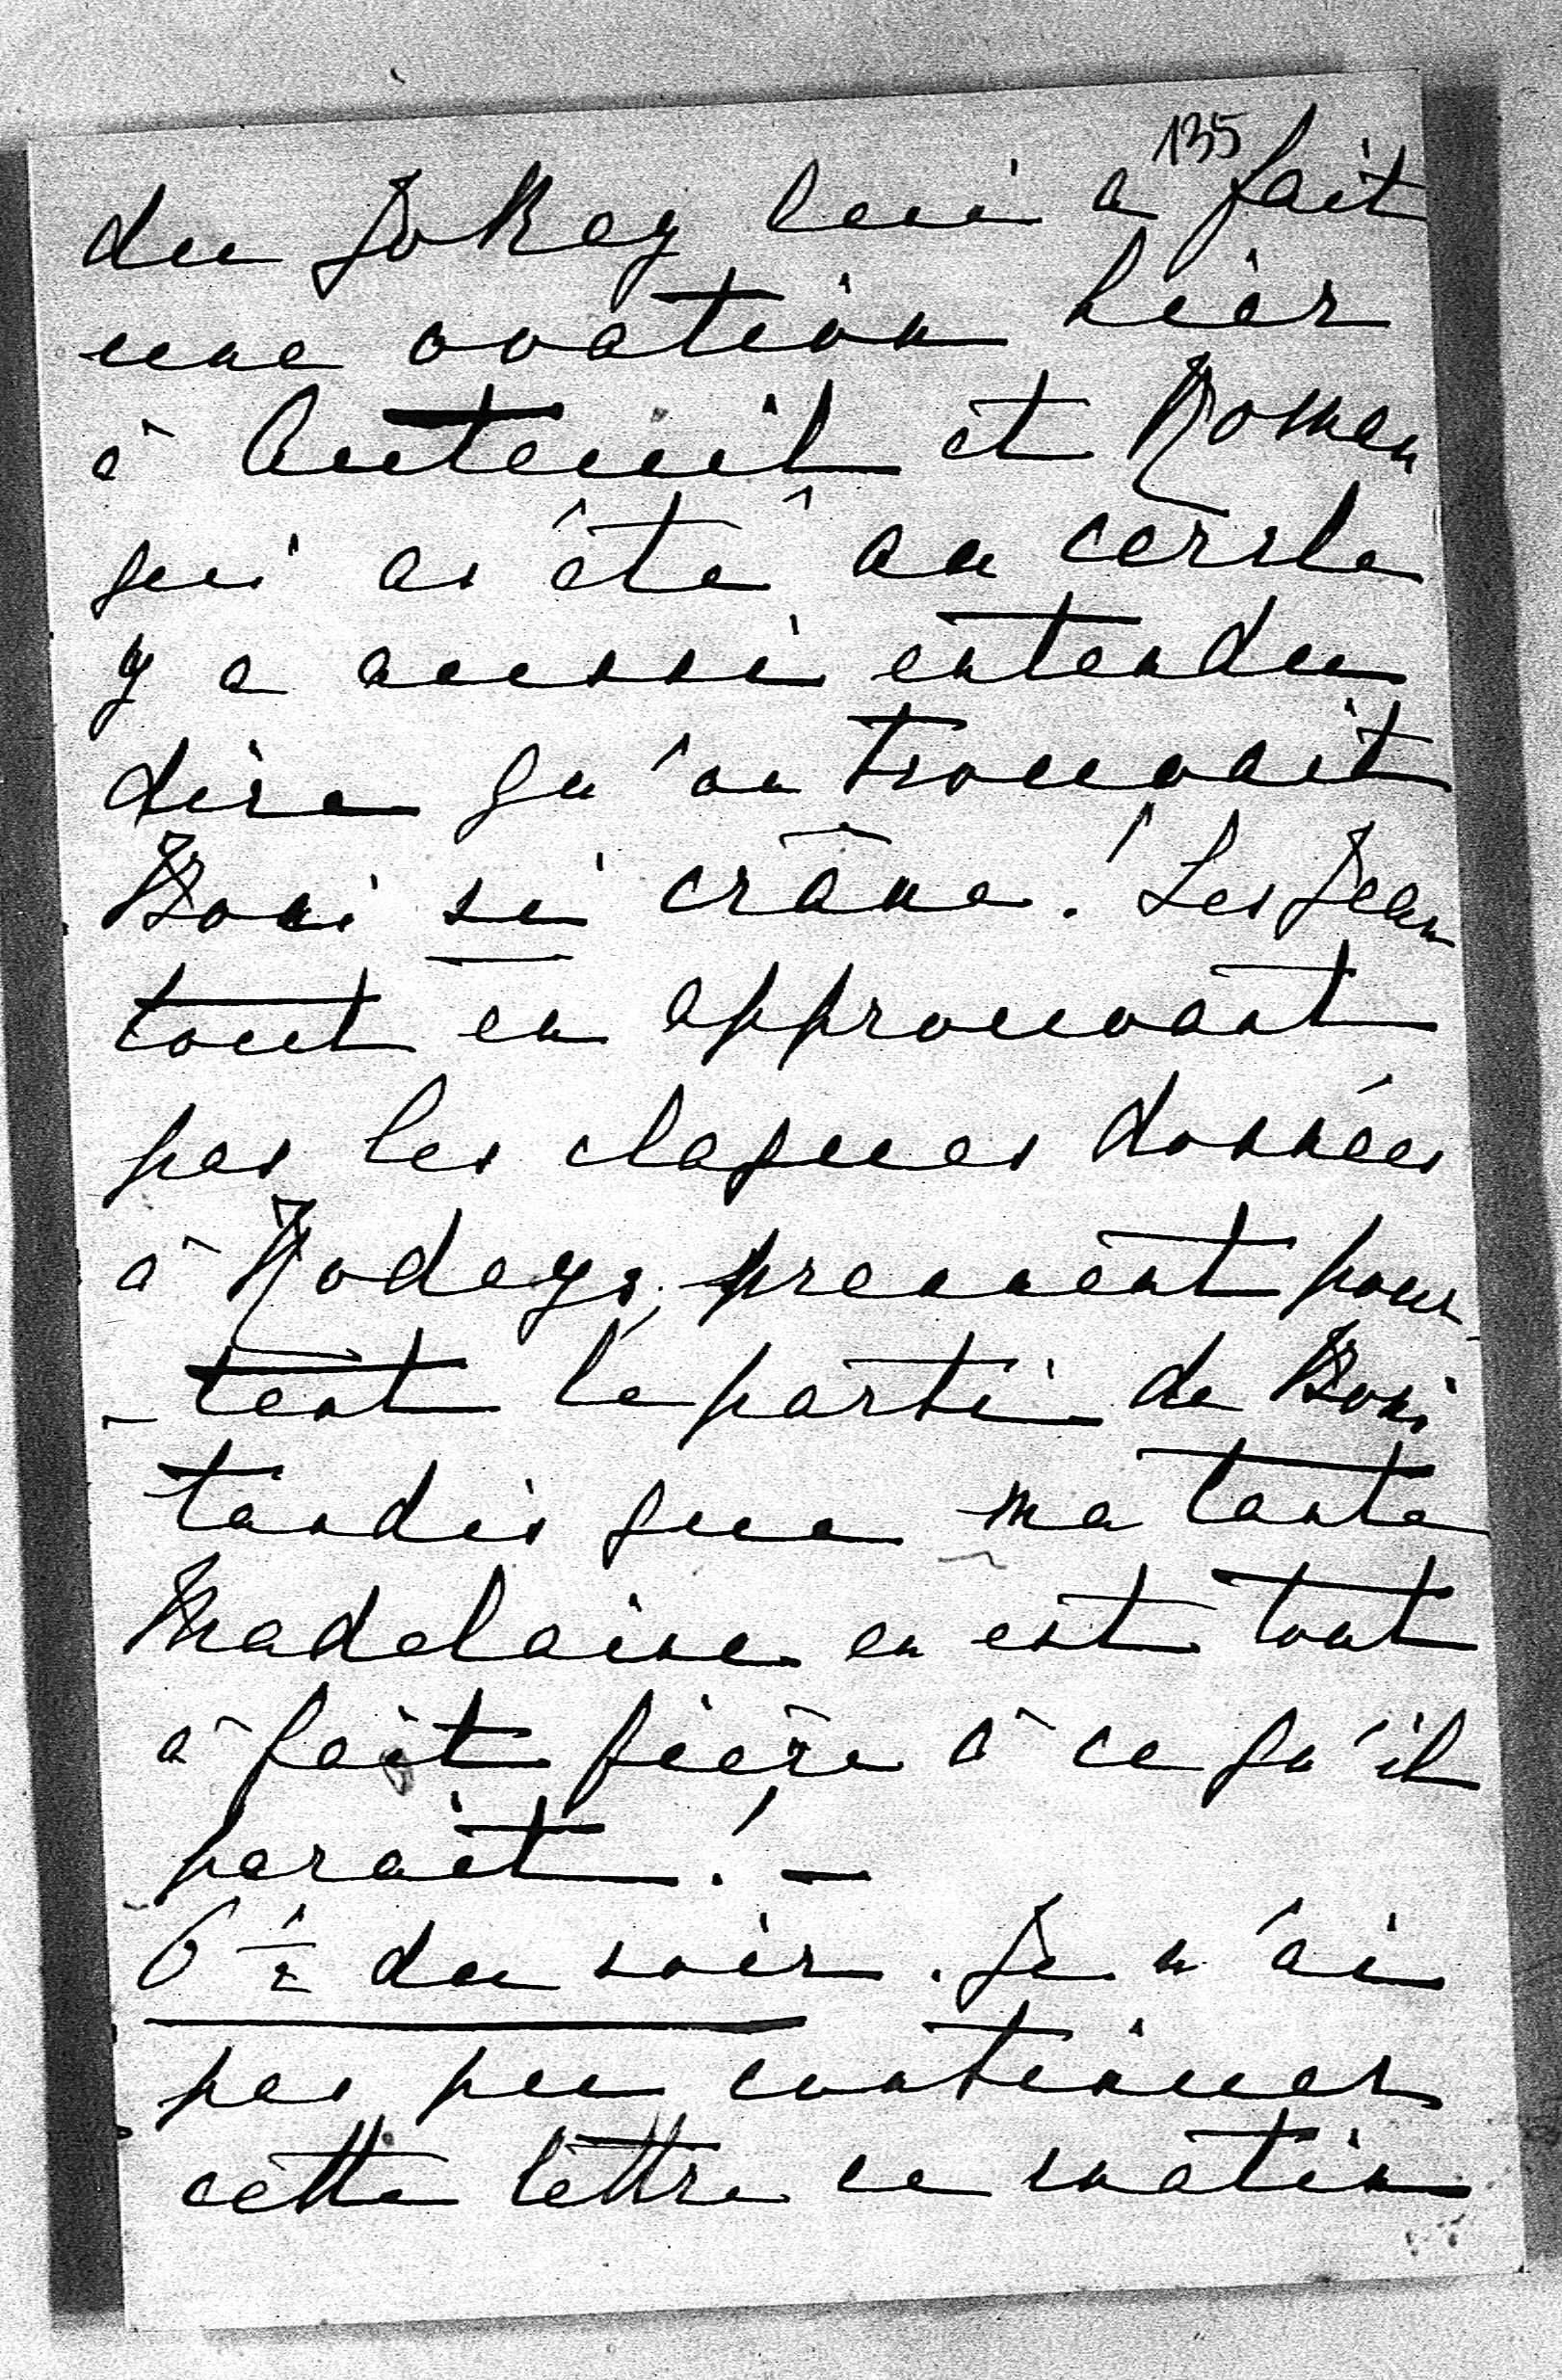 135
du Jokey lui a fait
une ovation hier
à Auteuil et Roman
qui as été au cercle
y a aussi entendu
dire qu'on trouvait
Boni si crâne ! Les Jean
tout en approuvant
pas les claques données
à Rodays, prennent pour-
-tant le parti de Boni
tandis que ma tante
Madelaine en est tout
à fait fière à ce qu'il
parait ! –
6 1/2 du soir. Je n'ai
pas pu continuer
cette lettre ce matin